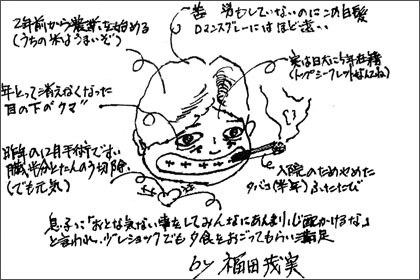 2年前から農業を始める
(うちの米はうまいぞ)
苦労もしていないのにこの白髪
ロマンスグレーにはほど遠い
実は日大に5年在籍
(トップシークレットなんてね)
年とって消えなくなった
目の下のクマ
昨年の12月手術で
臓半分とたんのう切除
(でも元気)
入院のためやめた
タバコ(半年)ふたたび
息子に「おとな気ない事をしてみんなにあんまり心配かけるな」
と言われ、ショックでも夕食をおごってもらい満足
by 福田茂実